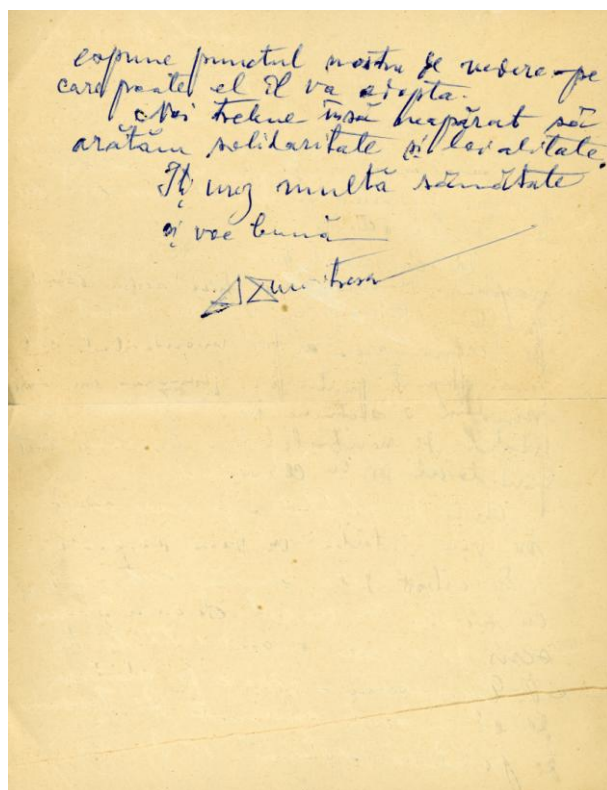 expune punctul nostru de vedere - pe
care poate el îl va adopta.
Noi trebue însă neapărat să
arătăm solidaritate și loialitate.
Iți urez multă sănătate
și voe bună